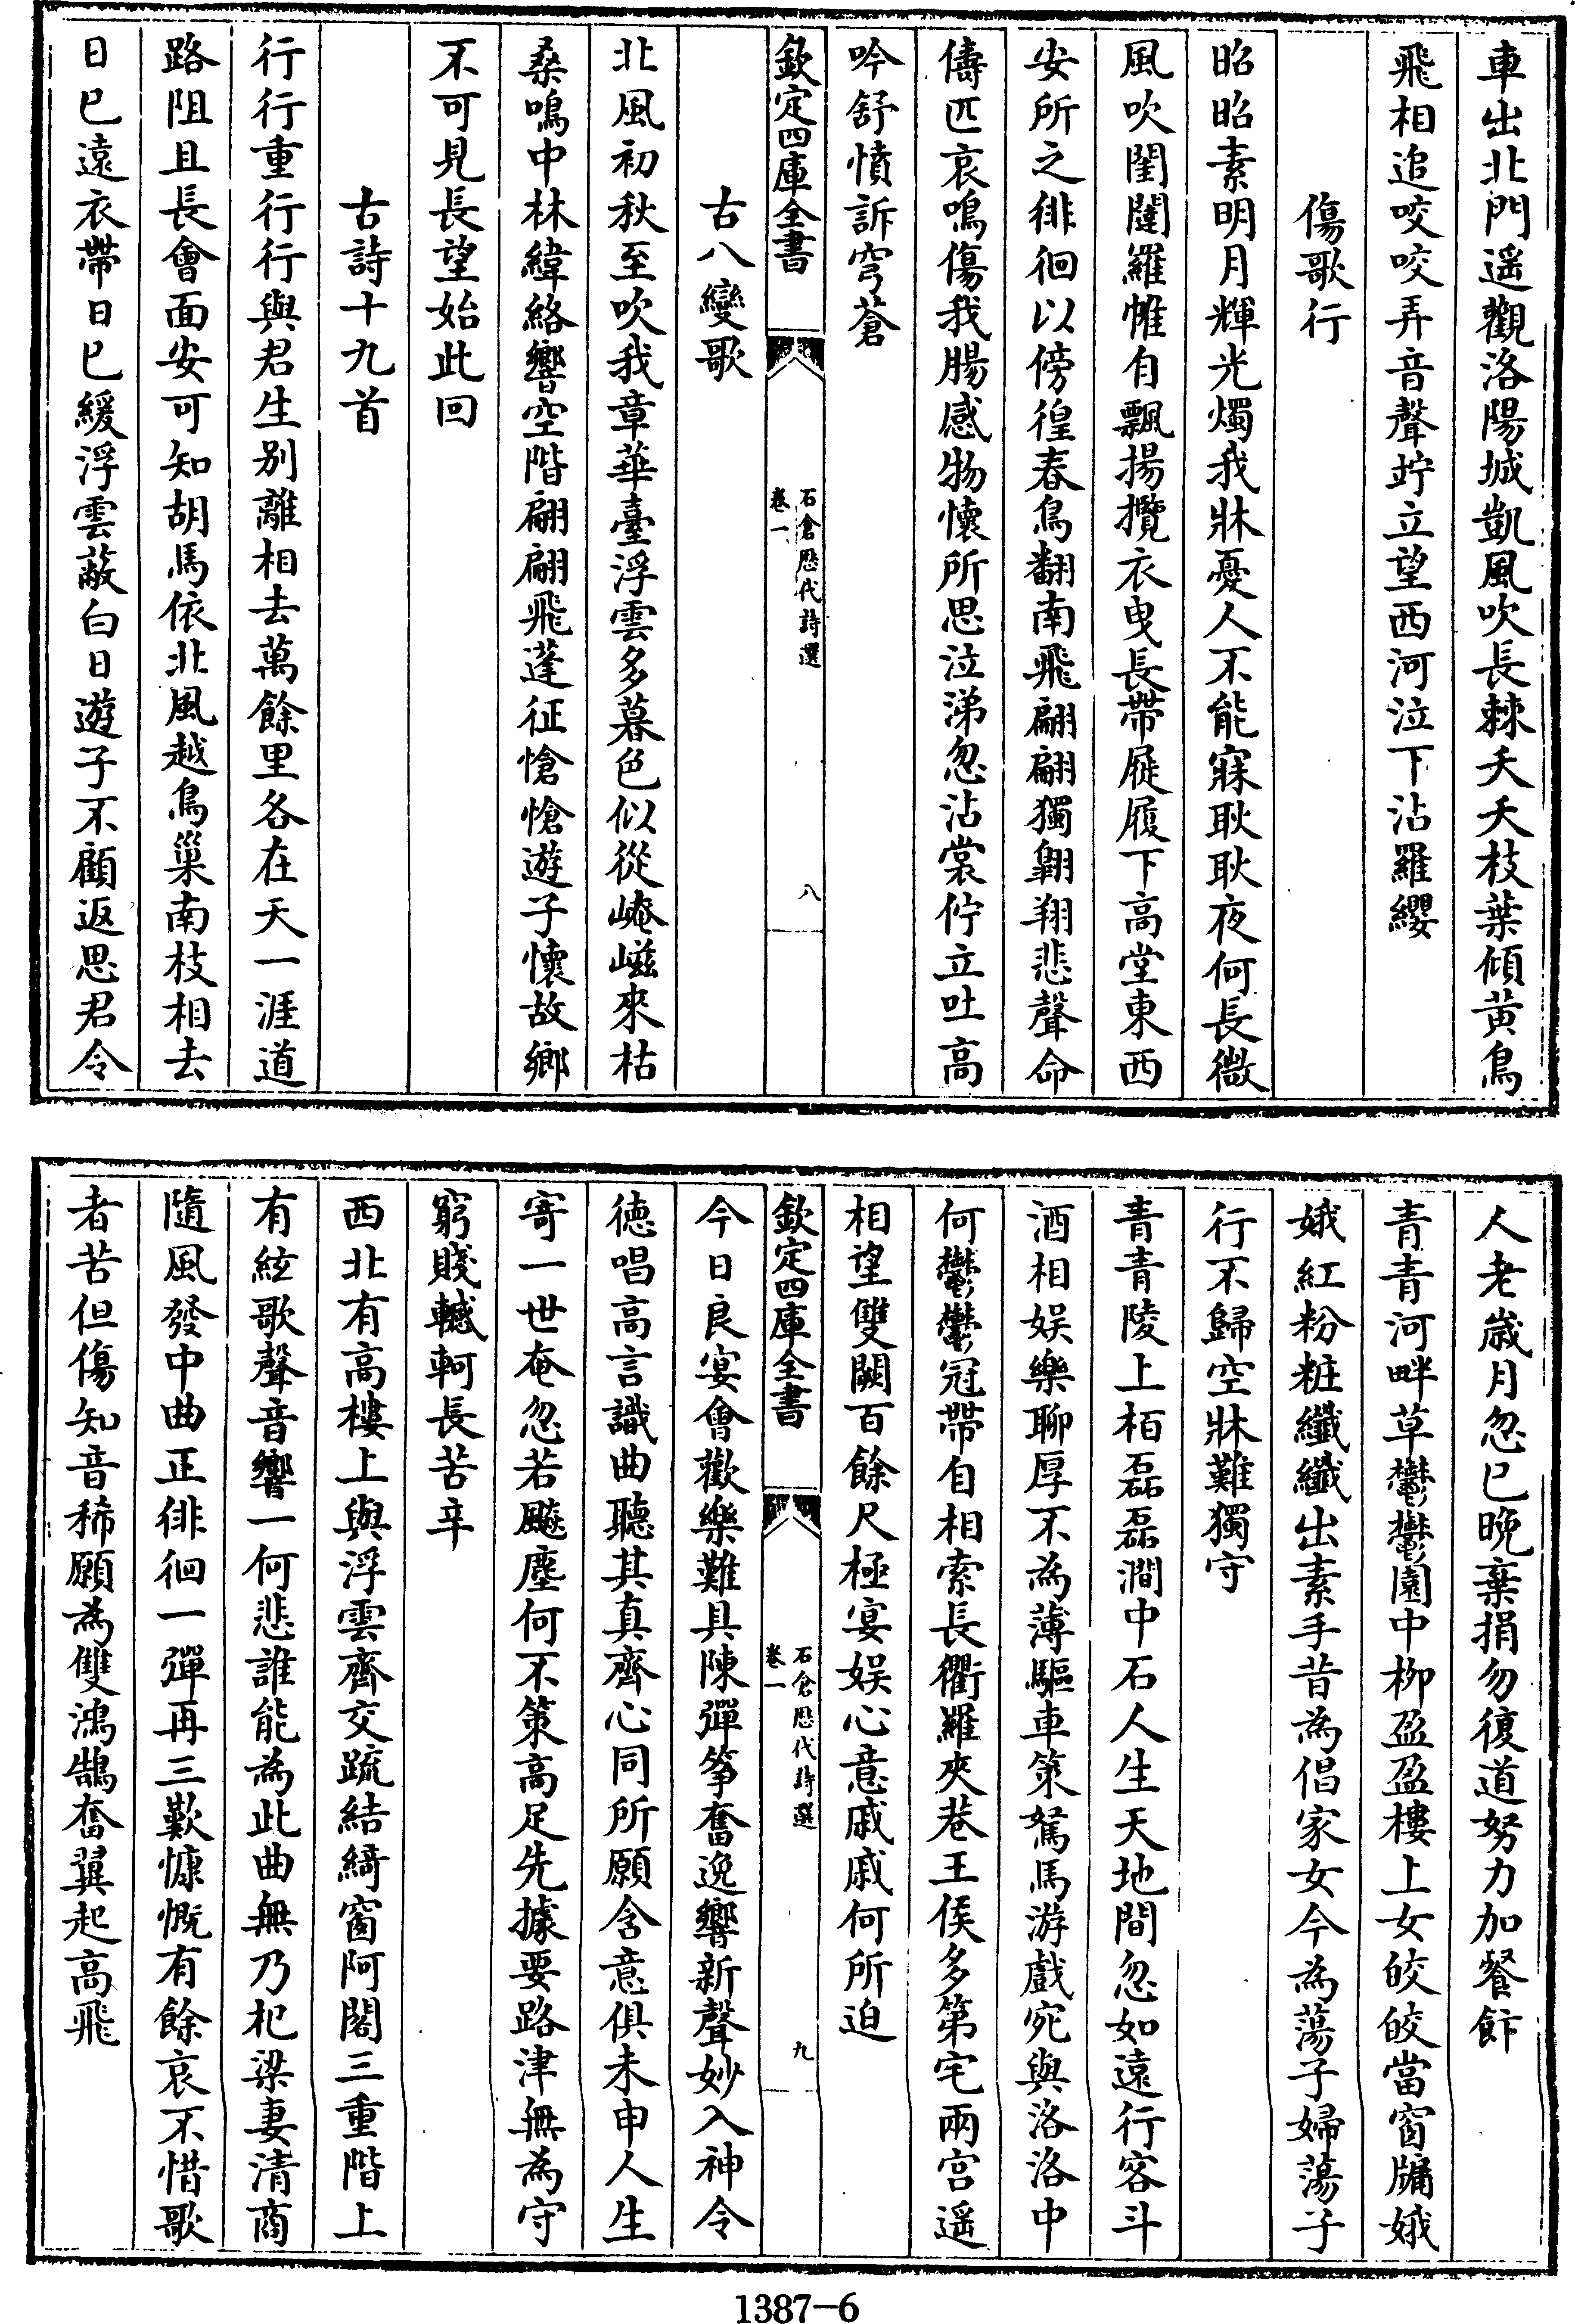 車出北門遥觀洛陽城凱風吹長棘夭夭枝葉傾黄鳥
飛相追咬咬弄音聲竚立望西河泣下沾羅纓
傷歌行
昭昭素明月輝光燭我牀憂人不能寐耿耿夜何長微
風吹閨闥羅帷自飄揚攬衣曳長帶屣履下高堂東西
安所之徘徊以傍徨春鳥翻南飛翩翩獨翱翔悲聲命
儔匹哀鳴傷我腸感物懷所思泣涕忽沾裳佇立吐高
吟舒憤訴穹蒼
欽定四庫全書
石倉歴代詩選
卷一
八
古八變歌
北風初秋至吹我章華臺浮雲多暮色似從崦嵫來枯
桑鳴中林緯絡響空階翩翩飛蓬征愴愴遊子懷故鄉
不可見長望始此回
古詩十九首
行行重行行與君生别離相去萬餘里各在天一涯道
路阻且長會面安可知胡馬依北風越鳥巢南枝相去
日已遠衣帶日已緩浮雲蔽白日遊子不顧返思君令
人老歲月忽已晚棄捐勿復道努力加餐飰
青青河畔草鬱鬱園中柳盈盈樓上女皎皎當窗牖娥
娥紅粉粧纖纖出素手昔為倡家女今為蕩子婦蕩子
行不歸空牀難獨守
青青陵上栢磊磊澗中石人生天地間忽如遠行客斗
酒相娱樂聊厚不為薄驅車策駑馬游戲宛與洛洛中
何鬱鬱冠帶自相索長衢羅夾巷王侯多第宅兩宫遥
相望雙闕百餘尺極宴娱心意戚戚何所迫
欽定四庫全書
石倉歴代詩選
卷一
九
今日良宴會歡樂難具陳彈筝奮逸響新聲妙入神令
徳唱高言識曲聽其真齊心同所願含意俱未申人生
寄一世奄忽若飈塵何不策高足先據要路津無為守
窮賤轗軻長苦辛
西北有高樓上與浮雲齊交疏結綺窗阿閣三重階上
有絃歌聲音響一何悲誰能為此曲無乃杞梁妻清商
隨風發中曲正徘徊一彈再三歎慷慨有餘哀不惜歌
者苦但傷知音稀願為雙鴻鵠奮翼起高飛
1387-6